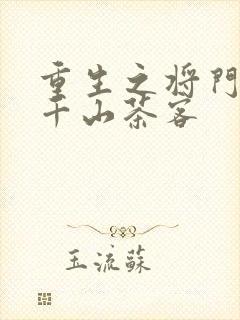 重生之将門
千山茶客
玉流蘇